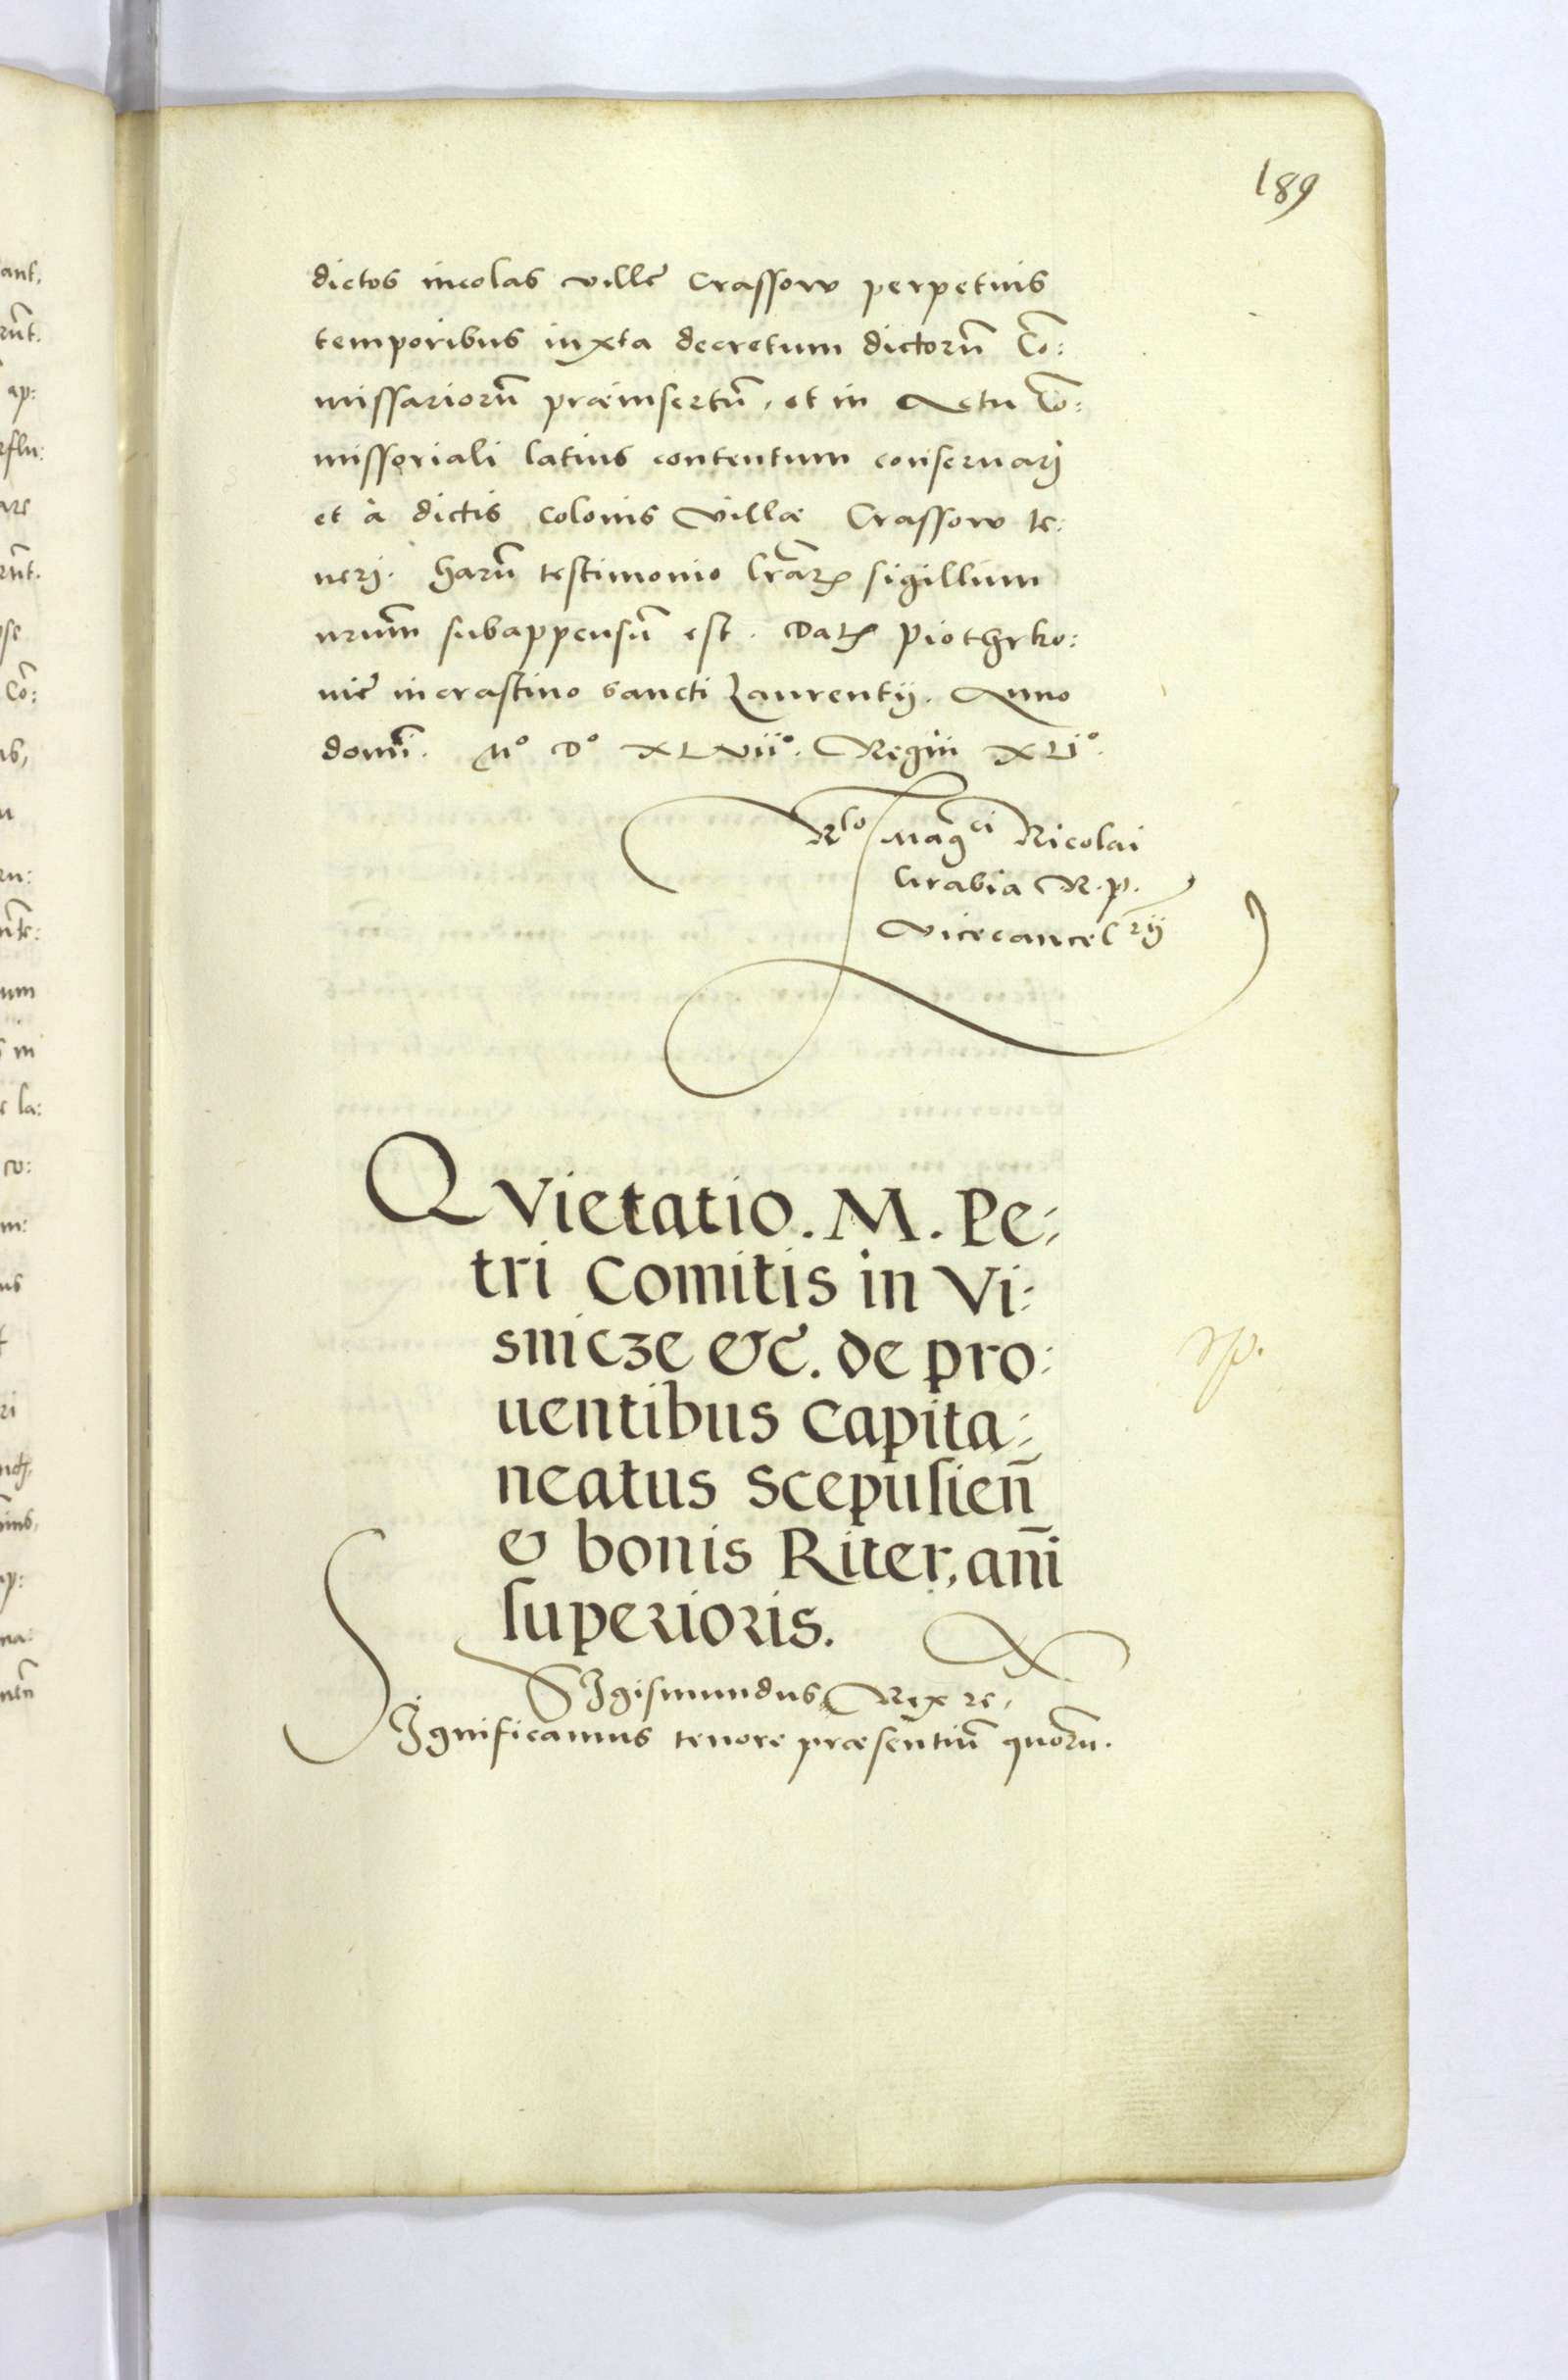 189
dictos incolas villę Crassow perpetuis
temporibus iuxta decretum dictorū Cō:
missariorū præinsertū, et in Actu Cō:
missoriali latius contentum conseruarj
et à dictis colonis Villæ Crassow te:
nerj. Harū testimonio lr̄arꝝ sigillum
nrum̄ subappensū est. Datꝝ Piothrko:
uię in crastino sancti Laurentij. Anno
domī. Mº Dº XLVIIº. Regnī XLIº.
Rlo Magci Nicolai
Grabia R. p.
Vicecancelrij
QVietatio. M. Pe:
tri Comitis in Vi:
snicze &c̄. de pro:
uentibus Capita:
neatus Scepusien̄
& bonis Riter, an̄i
superioris.
SIgismundus Rex rc,
SIgnificamus tenore præsentiū quorū.